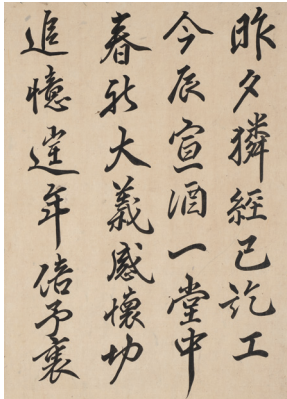 昨夕麟經已訖工
今辰宣酒一堂中
春秋大義感懷切
追憶年倍予衷